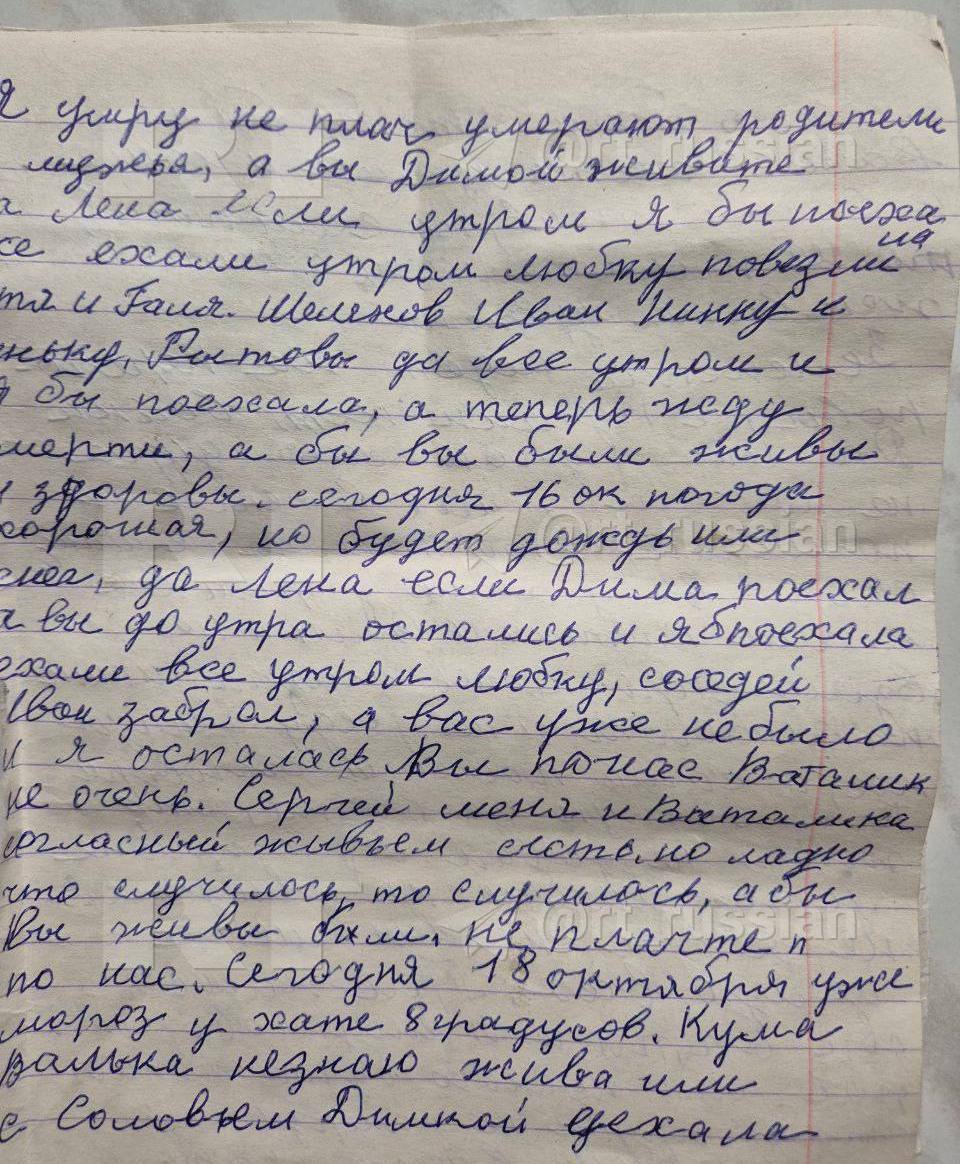 я умру не плач умерают родители
мужья, а вы Димой живите
а Лена если утром я бы поеха
се ехали утром Любку повезли на
тя и Галя. Шеленов Иван Нинку и
еньку, Рытовы да все утром и
я бы поехала, а теперь жду
мерти, а бы вы были живы
и здоровы. сегодня 16 ок погода
хорошая, но будет дождь или
снег, да Лена если Дима поехал
а вы до утра остались и я б поехала
ехали все утром Любку, соседей
Иван забрал, а вас уже не было
и я осталась Вы по нас Ваталик
не очень. Сергей меня и Ваталика
согласный живьем съесть, но ладно
что случилось, то случилось, а бы
Вы живы были. не плачте п
по нас. Сегодня 18 октября уже
мороз у хате 8 градусов. Кума
валька незнаю жива или
с Соловьем Димкой уехала
@rt_russian
@rt_russian
@rt_russian